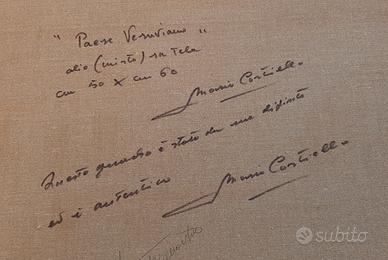 " Paese Vesuviano "
olio (misto) su tela
cm 50 x cm 60
Mario Cortiello
Questo quadro è stato da me dipinto
ed è autentico
Mario Cortiello
subito